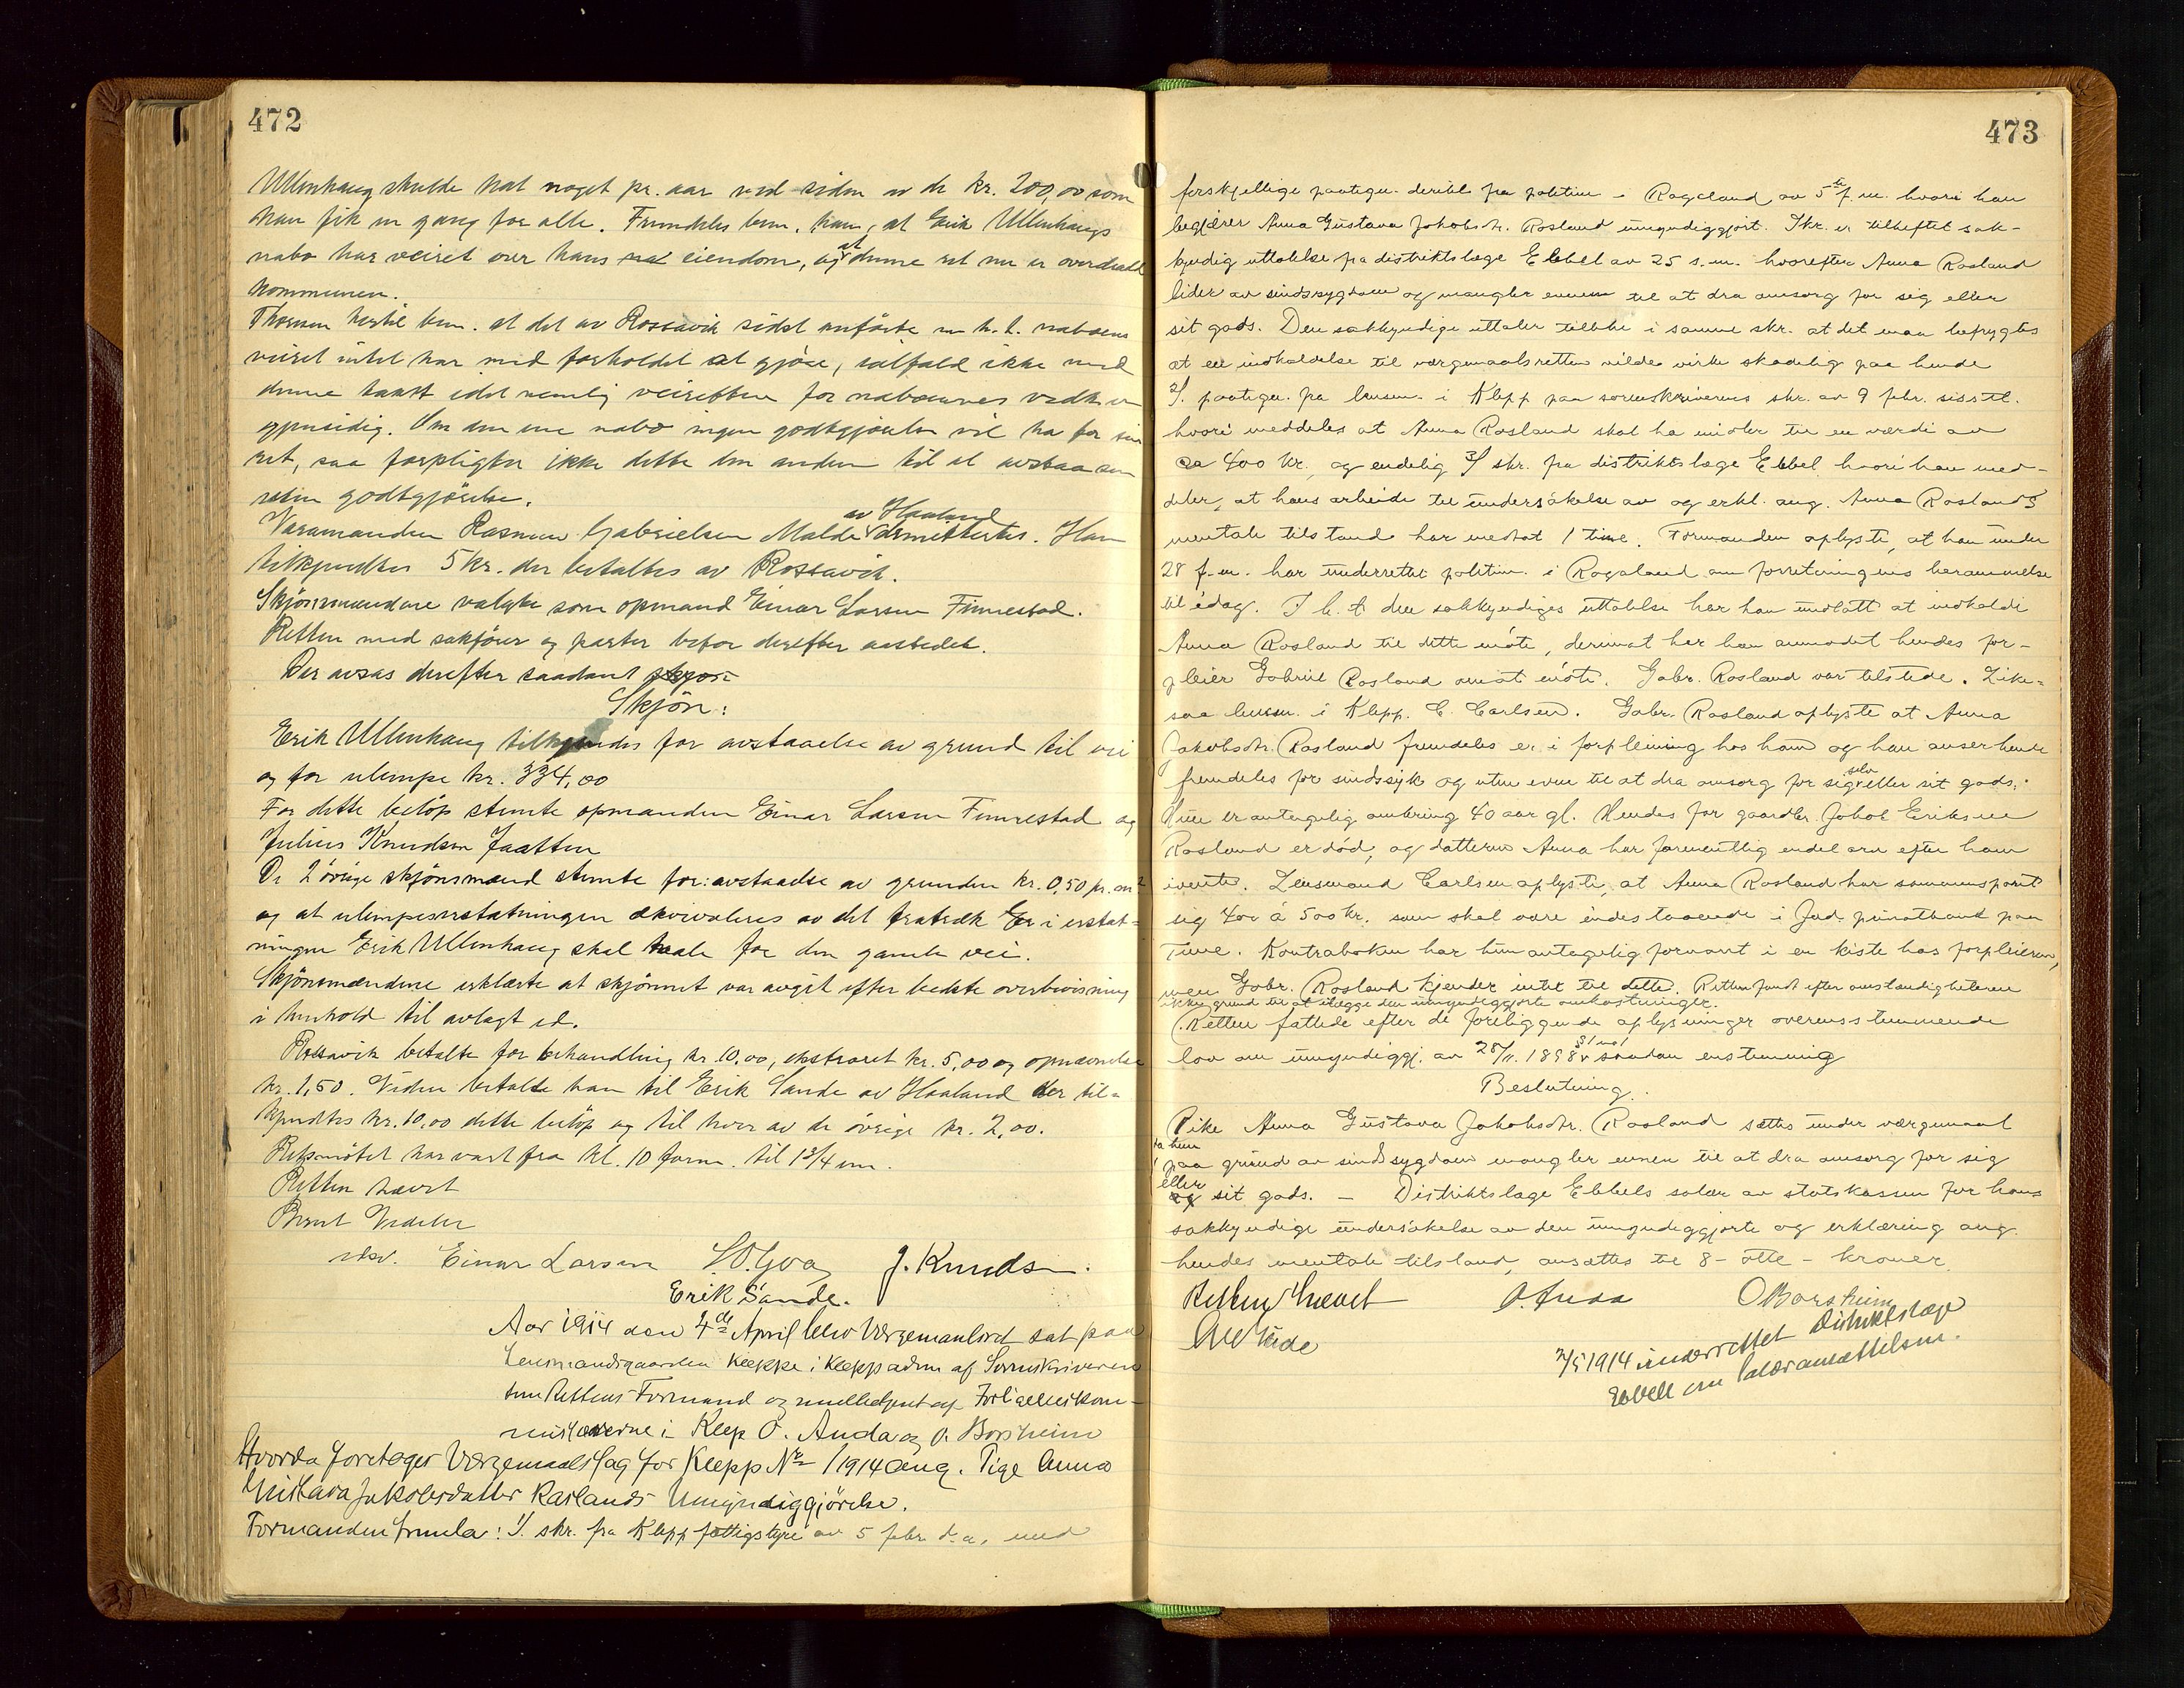 472
Ullenhaug skulde hat noget pr. aar ved siden av de kr. 200,00 som
han fik en gang for alle. Fremdeles bem. han, at Erik Ullenhaugs
nabo har veiret over hans eiendom, og at denne ret nu er overdratt
kommunen.
Thorsen hertil bem. at det av Rossavik sidst anførte m. h. t. naboens
veiret intet har med forholdet at gjøre, ialfald ikke med
denne takst idet nemlig veiretten for naboernes vedk. er
gjensidig. Om den ene nabo ingen godtgjørelse vil ha for sin
ret, saa forpligter ikke dette den anden til at avstaa sin
uten godtgjørelse.
Varamanden Rasmus Gabrielsen Malde av Haaland dimitteres. Han
tilkjendtes 5 kr. der betaltes av Rossavik.
Skjønsmændene valgte som opmand Einar Larsen Finnestad.
Retten med sakfører og parter befor derefter aastedet.
Der avsas derefter saadant skjøn
Skjøn:
Erik Ullenhaug tilkjendes for avstaaelse av grund til vei
og for ulempe kr. 334,00
For dette beløp stemte opmanden Einar Larsen Finnestad og
Julius Knudsen Jaatten
De 2 øvrige skjønsmænd stemte for: avstaaelse av grunden kr. 0,50 pr. m²
og at ulempeserstatningen ækvivaleres av det fratræk i erstat-
ningen Erik Ullenhaug skal taale for den gamle vei.
Skjønsmændene erklærte at skjønnet var avgit efter bedste overbevisning
i henhold til avlagt ed.
Rossavik betalte for behandling kr. 10,00, ekstraret kr. 5,00 og opnævnelse
kr. 1,50. Viden betalte han til Erik Sande av Haaland der til-
kjendtes kr. 10,00 dette beløp og til hver av de øvrige kr. 2,00.
Retsmøtet har vart fra kl. 10 form. til 1 3/4 em.
Retten hævet
Bernt Vedeler
Einar Larsen J. Knudsen.
Erik Sande.
Aar 1914 den 4de April blev Værgemaalsret sat paa
Lensmandsgaarden Kleppe i Klepp adm af Sorenskriveren
som Rettens Formand og medbetjent af Forligelseskom-
missærerne i Klep O. Anda og O. Borsheim
Hvorda foretoges Værgemaals Sag for Klepp No 1/1914 ang. Pige Anna
Gustava Jakobsdatter Raslands Umyndiggjørelse.
Formanden fremla: 1/. skr. fra Klepp fattigstyre av 5 febr d. a. med
473
forskjellige paategn. deribl. fra politim. i Rogaland av 5te f. m. hvori han
begjærer Anna Gustava Jakobsdtr. Rosland umyndiggjort. Skr. er tilheftet sak-
kyndig uttalelse fra distriktslæge Ebbel av 25 s. m. hvorefter Anna Rosland
lider av sindssygdom og mangler evnen til at dra omsorg for sig eller
sit gods. Den sakkyndige uttaler tillike i samme skr. at det maa befrygtes
at en indkaldelse til værgemaalsretten vilde virke skadelig paa hende
2/. paategn. fra lensm. i Klepp paa sorenskriverens skr. av 9 febr. sisstl.
hvori meddeles at Anna Rosland skal ha midler til en værdi av
ca 400 kr. og endelig 3/. skr. fra distriktslæge Ebbel hvori han med-
deler, at hans arbeide til undersøkelse av og erkl. ang. Anna Roslands
mentale tilstand har medtat 1 time. Formanden oplyste, at han under
28 f. m. har underrettet politim. i Rogaland om forretningens berammelse
til idag. I h. t. den sakkyndiges uttalelse har han undlatt at indkalde
Anna Rosland til dette møte, derimot har han anmodet hendes for-
pleier Gabriel Rosland om at møte. Gabr. Rosland var tilstede. Like-
saa lensm. i Klepp. E. Earlsen. Gabr. Rosland oplyste at Anna
Jakobsdtr. Rosland fremdeles er i forpleining hos ham og han anser hende
fremdeles for sindssyk og uten evne til at dra omsorg for sig selv eller sit gods.
Hun er antagelig omkring 40 aar gl. Hendes far gaardbr. Jakob Eriksen
Rosland er død, og datteren Anna har formentlig endel arv efter ham
ivente. Lensmand Earlsen oplyste, at Anna Rosland har sammenspart
sig 400 à 500 kr. som skal være indestaaende i Jæd. privatbank paa
Time. Kontraboken har hun antagelig forvart i en kiste hos forpleieren,
men Gabr. Rosland kjender intet til dette. Retten fandt efter omstændigheterne
ikke grund til at ilegge den umyndiggjorte omkostninger.
Retten fattede efter de foreliggende oplysninger overensstemmende
lov om umyndiggj. av 28/11. 1898 saadan enstemmig
Beslutning.
Pike Anna Gustava Jakobsdtr. Rosland sættes under værgemaal
da hun
paa grund av sindssygdom mangler evnen til at dra omsorg for sig
eller
sit gods. — Distriktslæge Ebbels salær av statskassen for hans
sakkyndige undersøkelse av den umyndiggjorte og erklæring ang.
hendes mentale tilstand, ansættes til 8 - otte - kroner.
Retten hævet O. Anda O Borsheim
2/5 1914 underrettet Distriktslæge
Ebbell om salæransættelsen.